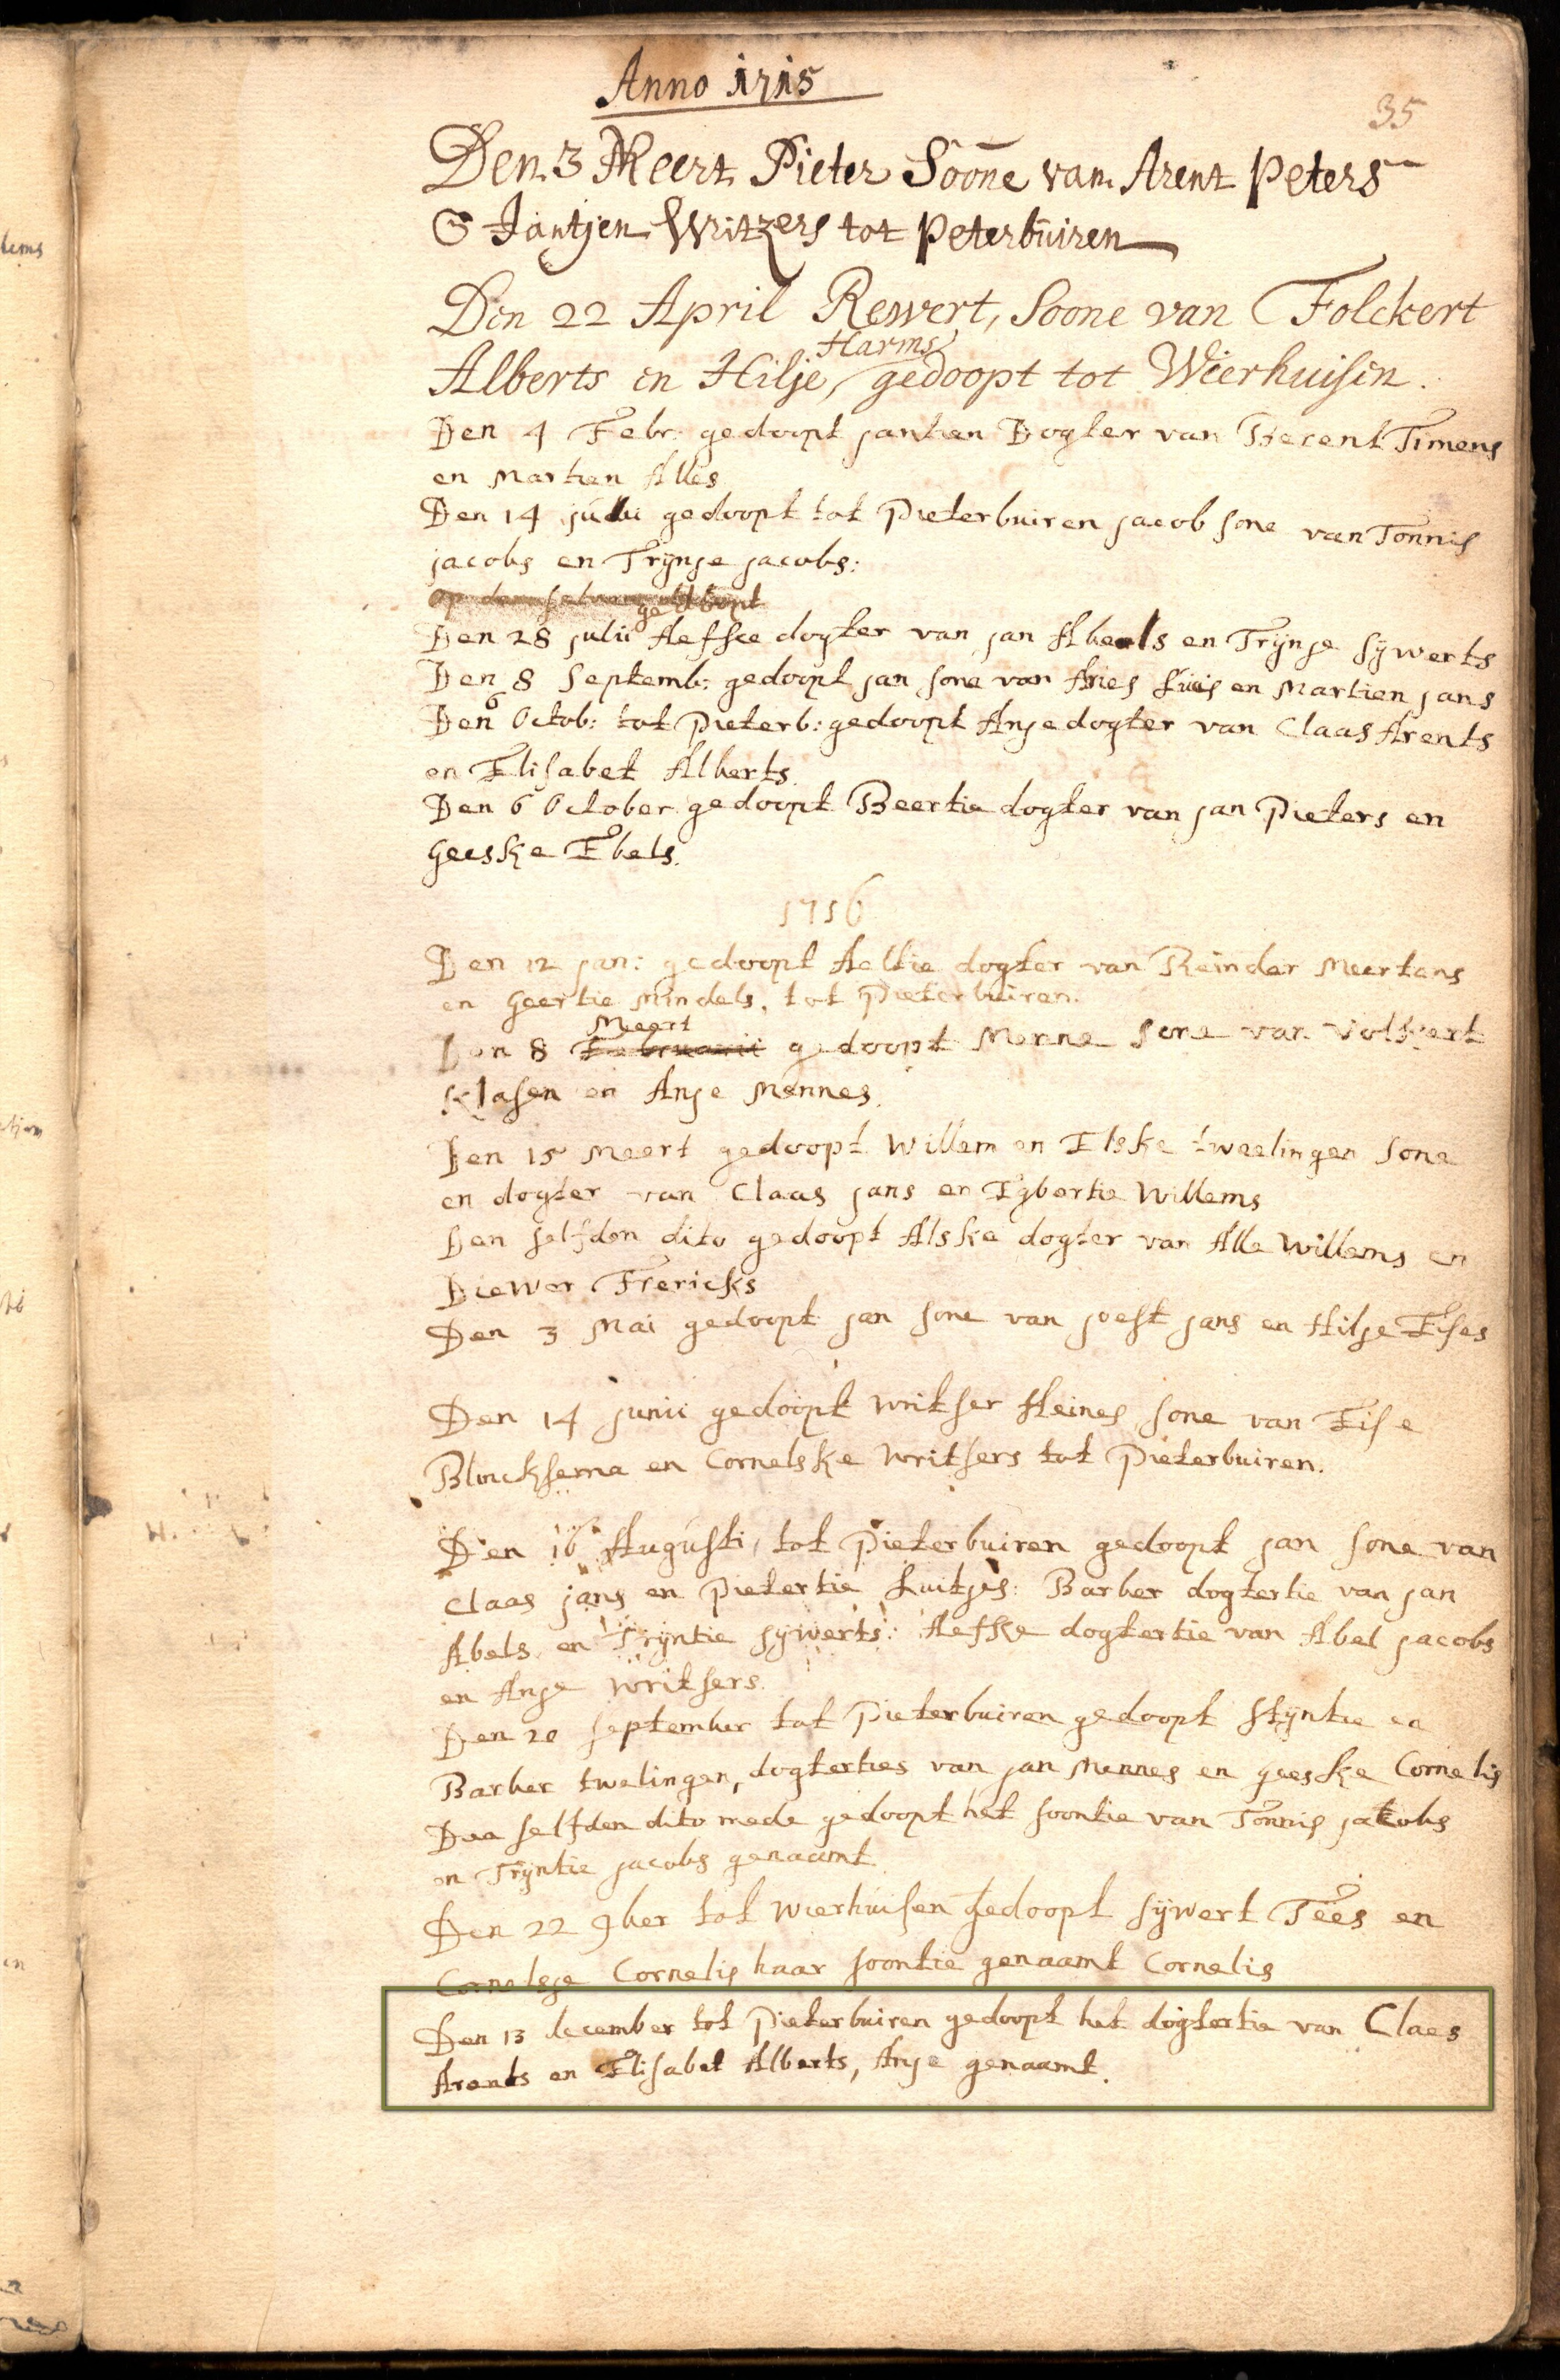 Anno 1715
35
Den 3 Meert Pieter Soone van Arent Peters
& Jantjen Writzers tot Peterbuiren
Den 22 April Rewert, Soone van Folckert
Harms
Alberts en Hilje, gedoopt tot Wierhuisen.
Den 4 Febr: gedoopt jantien Dogter van Timens
en Martien Alles
Den 14 gedoopt tot Pieterbuiren jacob sone van Tonnis
jacobs en Trijnje jacobs:
Op den
gedoopt
Den 28 julii Aefke dogter van jan Abels en Trijnje Sijwerts
Den 8 Septemb: gedoopt jan sone van Aries en Martien jans
Den 6 Octob: tot Pieterb: gedoopt Anje dogter van Claas Arents
en Elisabet Alberts.
Den 6 October gedoopt Beertie dogter van jan Pieters en
Geeske Ebels.
1716
Den 12 jan: gedoopt Aeltie dogter van Reinder Meertens
en Geertie Mindels, tot Pieterbuiren.
Meert
Den 8 Februarii gedoopt Menne sone van Volkert
Klasen en Anje Mennes.
Den 15 Meert gedoopt Willem en Elske tweelingen sone
en dogter van Claas jans en Egbertie Willems
Den selfden dito gedoopt Alske dogter van Alle Willems en
Diewer Frericks
Den 3 Mai gedoopt jan sone van joest jans en Hilje Eises
Den 14 junii gedoopt writser Heines sone van Eise
Blincksema en Cornelske Writsers tot Pieterbuiren.
Den 16 Augusti, tot Pieterbuiren gedoopt jan sone van
Claas jans en Pietertie Luitjes: Barber dogtertie van jan
Abels en Trijntie sijwerts: Aefke dogtertie van Abel jacobs
en Anje writsers.
Den 20 september tot Pieterbuiren gedoopt Stijntie en
Barber twelingen, dogterties van jan Mennes en geeske Cornelis
Den selfden dito mede gedoopt het soontie van Tonnis jakobs
en Trijntie jacobs genaamt
Den 22 9ber tot wierhuisen gedoopt sijwert Tees en
Cornelsje Cornelis haar soontie genaamt Cornelis
Den 13 december tot Pieterbuiren gedoopt het dogtertie van Claes
Arents en Elisabet Alberts, Anje genaamt.